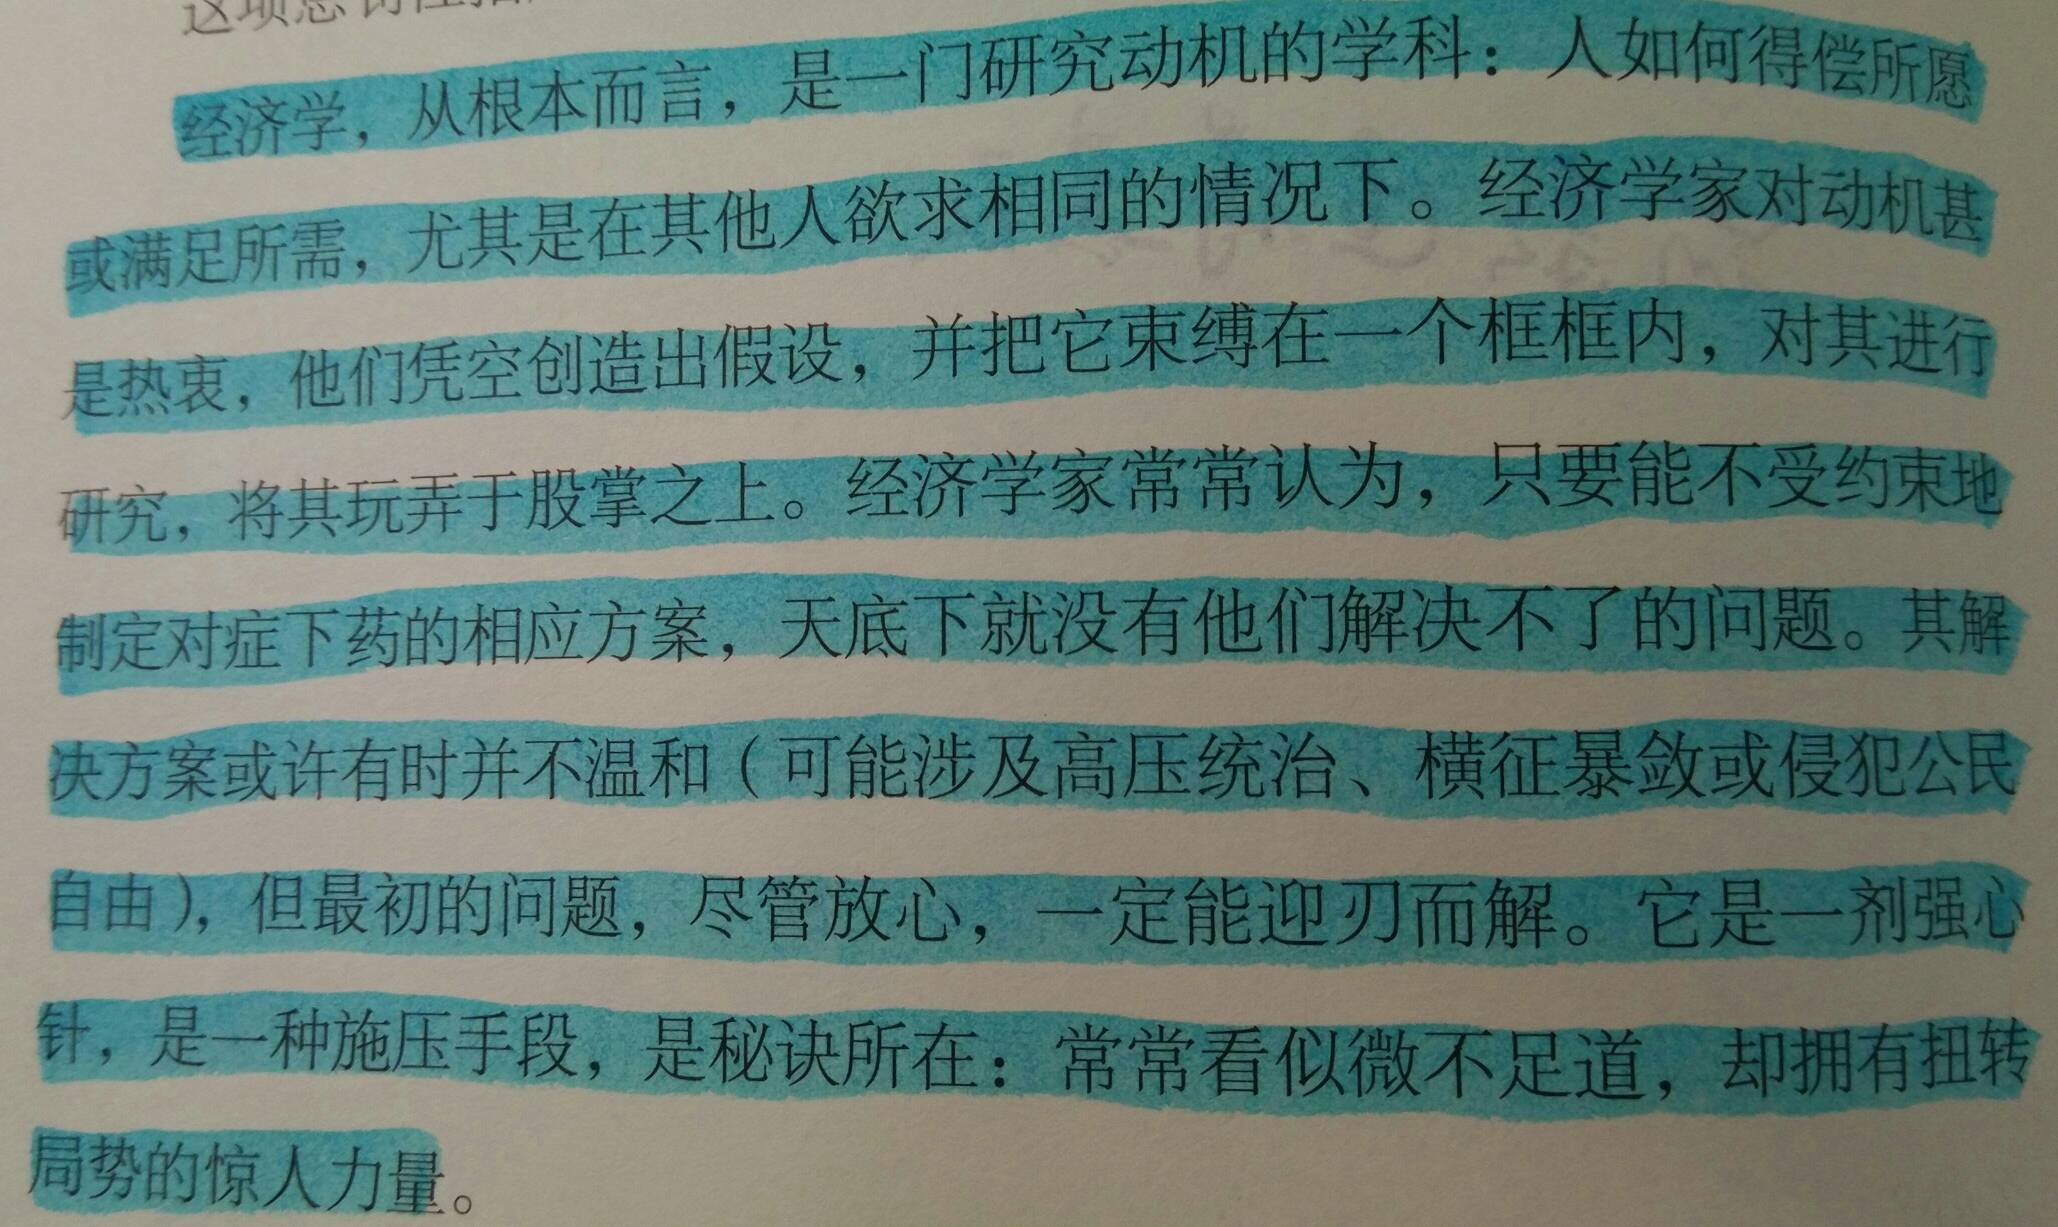 经济学，从根本而言，是一门研究动机的学科：人如何得偿所愿
或满足所需，尤其是在其他人欲求相同的情况下。经济学家对动机甚
是热衷，他们凭空创造出假设，并把它束缚在一个框框内，对其进行
研究，将其玩弄于股掌之上。经济学家常常认为，只要能不受约束地
制定对症下药的相应方案，天底下就没有他们解决不了的问题。其解
决方案或许有时并不温和（可能涉及高压统治、横征暴敛或侵犯公民
自由），但最初的问题，尽管放心，一定能迎刃而解。它是一剂强心
针，是一种施压手段，是秘诀所在：常常看似微不足道，却拥有扭转
局势的惊人力量。